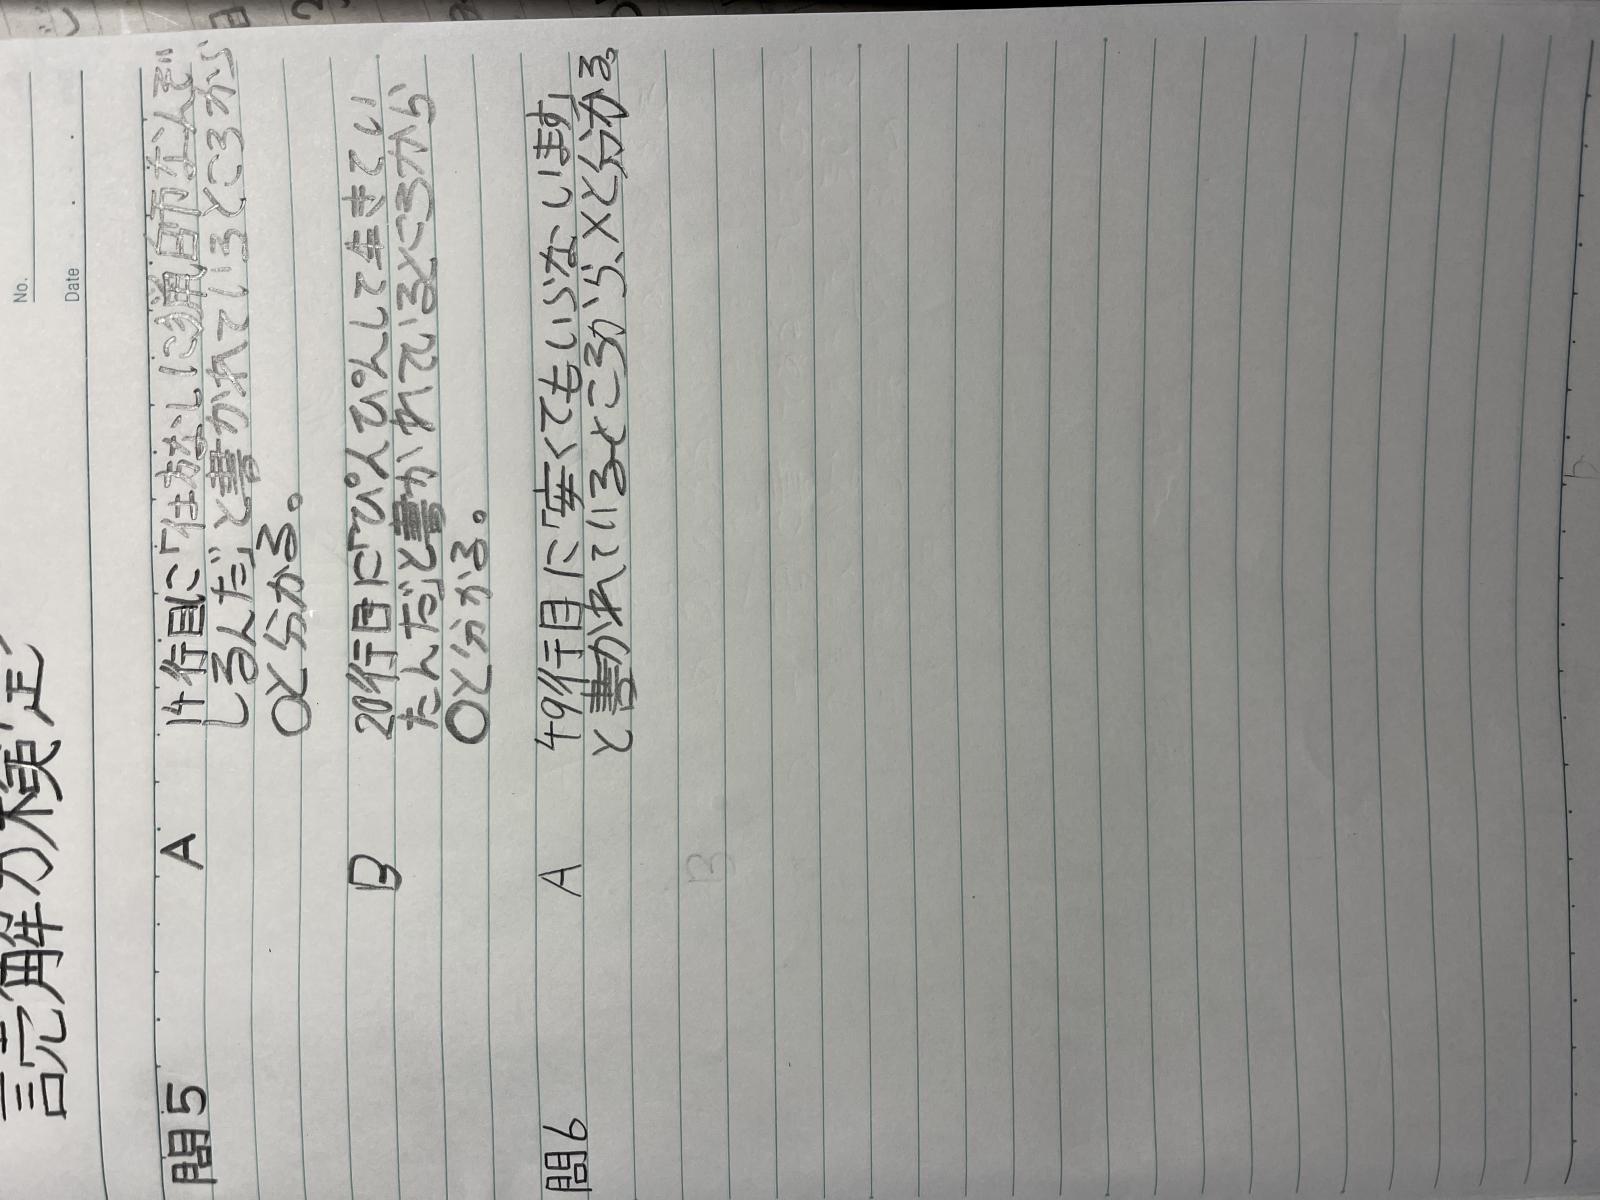 No.
Date
読解力検定
問5 A 14行目に「仕方なしに猟師なんぞ
しるんだ」と書かれているところから
〇と分かる。
B 20行目に「ぴんぴんして生きてい
たんだ」と書かれているところから
〇と分かる。
問6 A 49行目に「安くてもいらないます」
と書かれているところから、×と分かる。
B